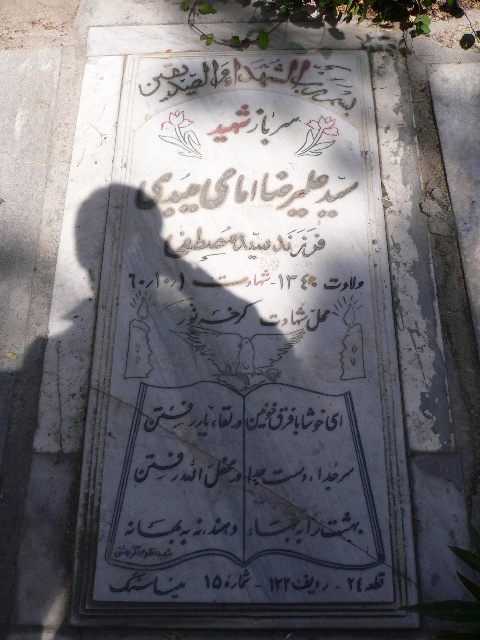 بسم رب الشهداء و الصدیقین
سرباز شهید
سید علیرضا امامی میبدی
فرزند سید مصطفی
ولادت ۱۳۴۰ - شهادت ۶۰/۱۰/۱
محل شهادت
ای خوشا با فرق خونین در لقاء یار رفتن
سر جدا، دست جدا در محفل الله رفتن
بهشت را به بهاء دهند نه به بهانه
قطعه ۲۴ - ردیف ۱۲۲ - شماره ۱۵